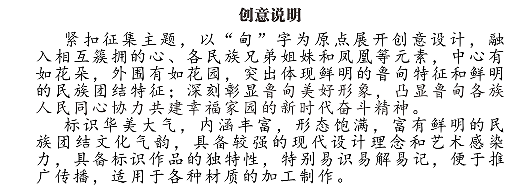 创意说明
紧扣征集主题，以“甸”字为原点展开创意设计，融
入相互簇拥的心、各民族兄弟姐妹和凤凰等元素，中心有
如花朵，外围有如花园，突出体现鲜明的鲁甸特征和鲜明
的民族团结特征；深刻彰显鲁甸美好形象，凸显鲁甸各族
人民同心协力共建幸福家园的新时代奋斗精神。
标识华美大气，内涵丰富，形态饱满，富有鲜明的民
族团结文化气韵，具备较强的现代设计理念和艺术感染
力，具备标识作品的独特性，特别易识易解易记，便于推
广传播，适用于各种材质的加工制作。